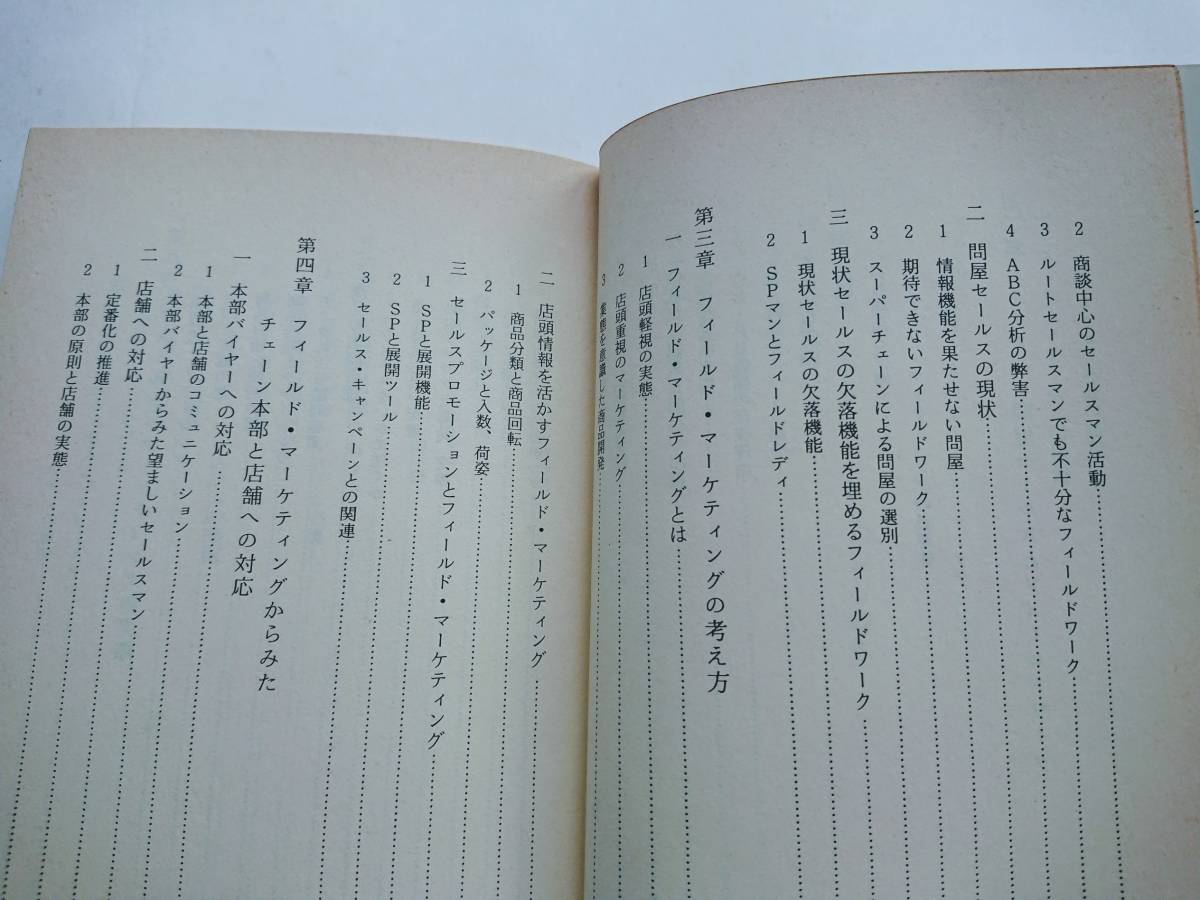 2 商談中心のセールスマン活動
3 ルートセールスマンでも不十分なフィールドワーク
4 ABC分析の弊害
二 問屋セールスの現状
1 情報機能を果たせない問屋
2 期待できないフィールドワーク
3 スーパーチェーンによる問屋の選別
三 現状セールスの欠落機能を埋めるフィールドワーク
1 現状セールスの欠落機能
2 SPマンとフィールドレディ
第三章 フィールド・マーケティングの考え方
一 フィールド・マーケティングとは
1 店頭軽視の実態
2 店頭重視のマーケティング
3 業態を意識した商品開発
二 店頭情報を活かすフィールド・マーケティング
1 商品分類と商品回転
2 パッケージと入数、荷姿
三 セールスプロモーションとフィールド・マーケティング
1 SPと展開機能
2 SPと展開ツール
3 セールス・キャンペーンとの関連
第四章 フィールド・マーケティングからみた
チェーン本部と店舗への対応
一 本部バイヤーへの対応
1 本部と店舗のコミュニケーション
2 本部バイヤーからみた望ましいセールスマン
二 店舗への対応
1 定番化の推進
2 本部の原則と店舗の実態